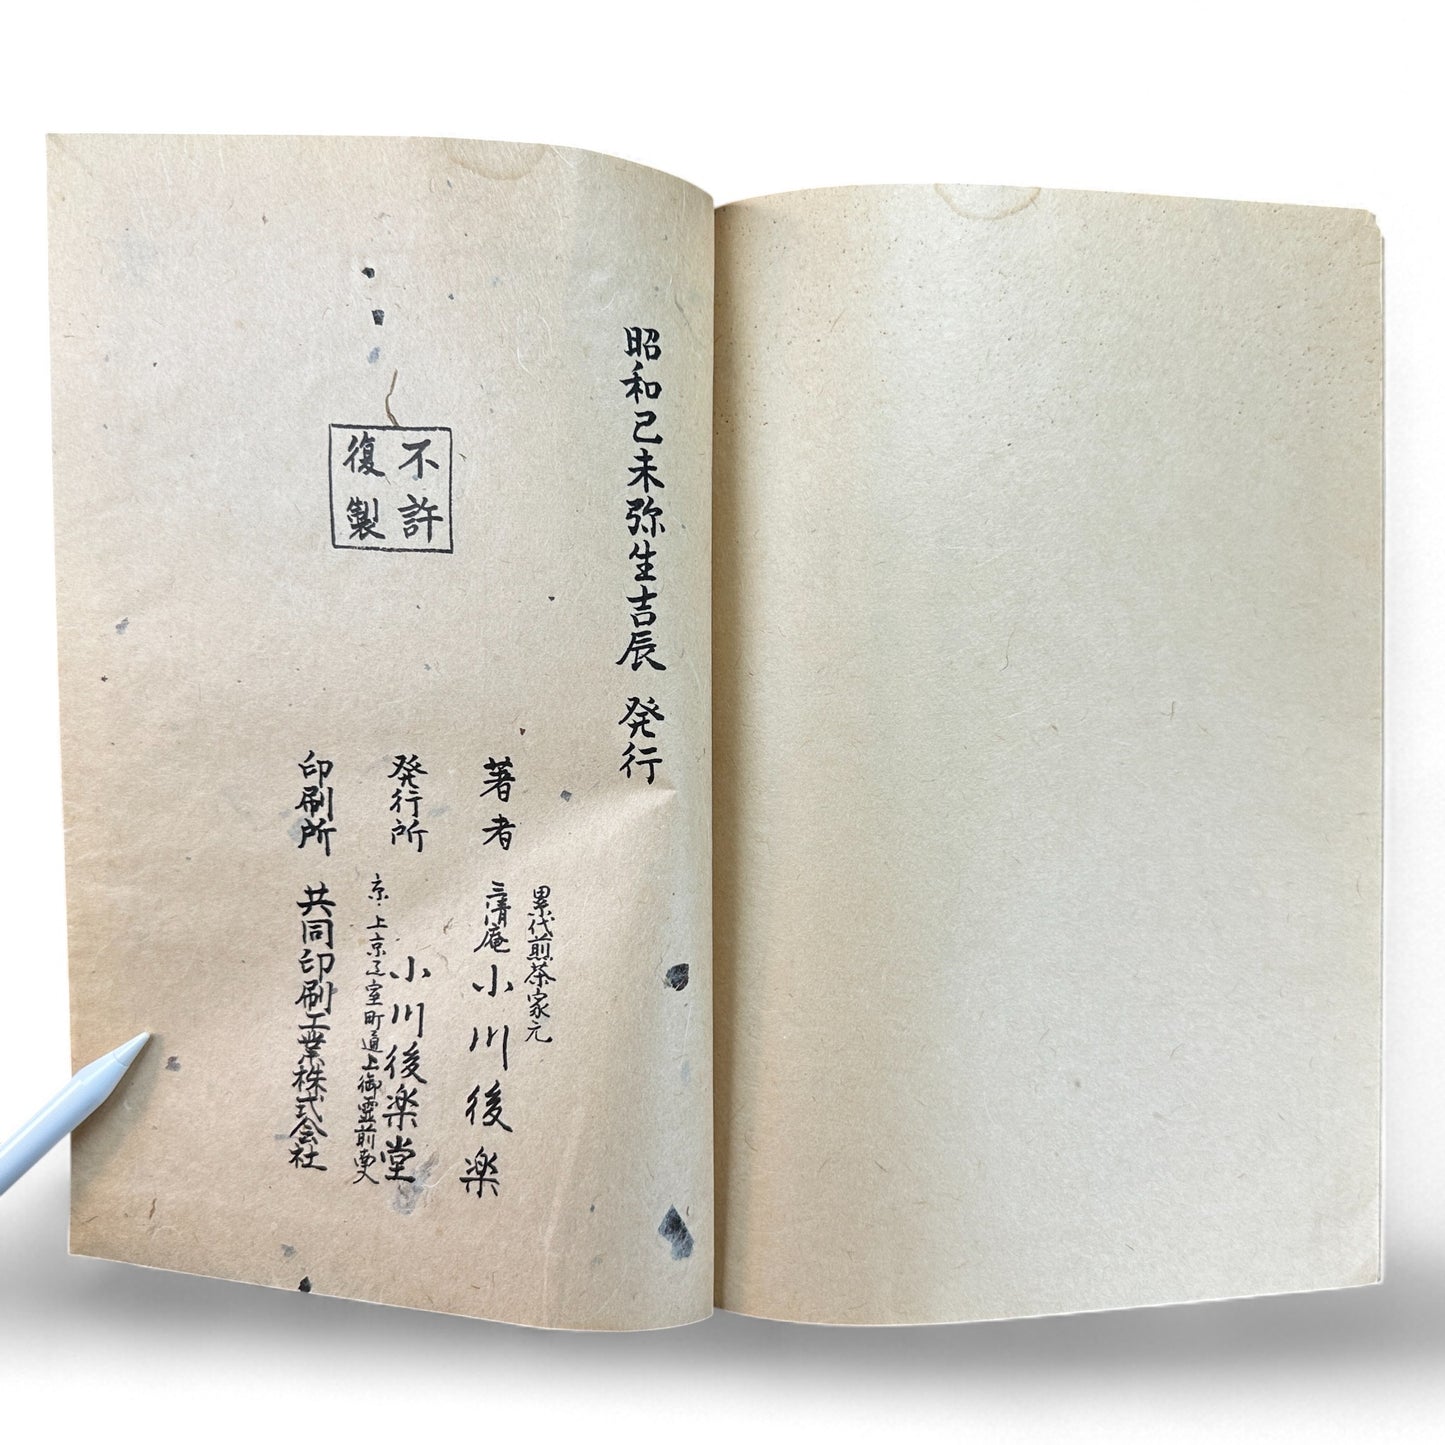 昭和己未弥生吉辰 発行
不許
復製
累代煎茶家元
著者 三清庵 小川後楽
発行所 小川後楽堂
京・上京区室町通上御霊前
印刷所 共同印刷工業株式会社